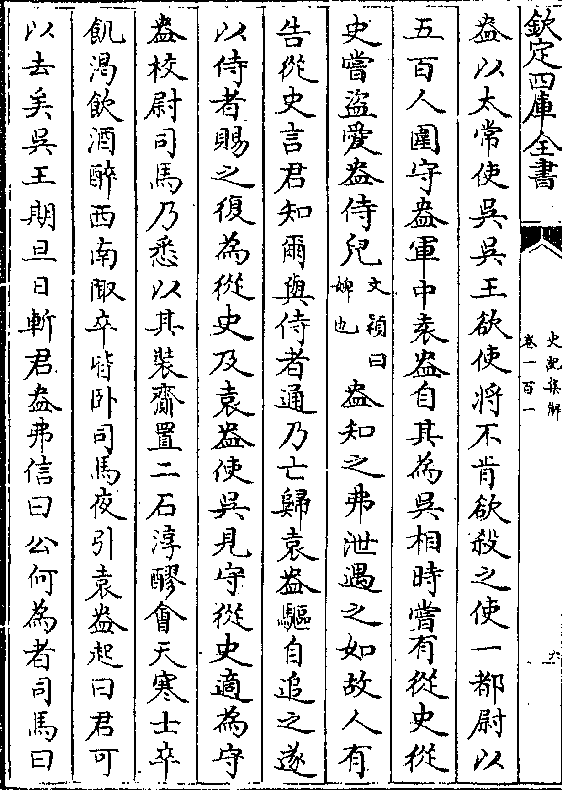 欽定四庫全書
史記集解
卷一百一
六
盎以太常使吳吳王欲使將不肯欲殺之使一都尉以
五百人圍守盎軍中袁盎自其為吳相時嘗有從史從
史嘗盜愛盎侍兒文穎曰婢也盎知之弗泄遇之如故人有
告從史言君知爾與侍者通乃亡歸袁盎驅自追之遂
以侍者賜之復為從史及袁盎使吳見守從史適為守
盎校尉司馬乃悉以其裝齎置二石淳醪會天寒士卒
飢渴飲酒醉西南陬卒皆卧司馬夜引袁盎起曰君可
以去矣吳王期旦日斬君盎弗信曰公何為者司馬曰